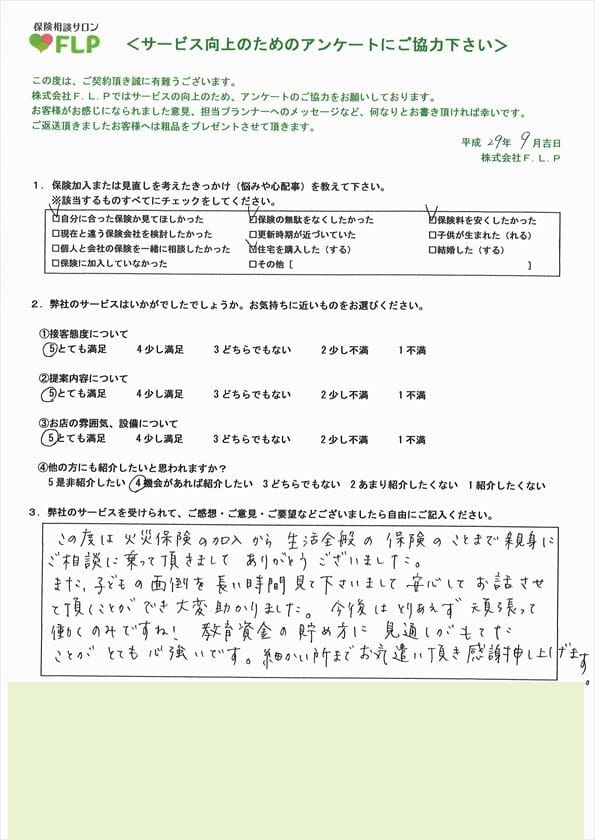 保険相談サロン
FLP
＜サービス向上のためのアンケートにご協力下さい＞
この度は、ご契約頂き誠に有難うございます。
株式会社F.L.Pではサービスの向上のため、アンケートのご協力をお願いしております。
お客様がお感じになられました意見、担当プランナーへのメッセージなど、何なりとお書き頂ければ幸いです。
ご返送頂きましたお客様へは粗品をプレゼントさせて頂きます。
平成 29年 9月吉日
株式会社F.L.P
1．保険加入または見直しを考えたきっかけ（悩みや心配事）を教えて下さい。
※該当するものすべてにチェックをしてください。
☑自分に合った保険か見てほしかった ☑保険の無駄をなくしたかった ☑保険料を安くしたかった
□現在と違う保険会社を検討したかった □更新時期が近づいていた □子供が生まれた（れる）
□個人と会社の保険を一緒に相談したかった ☑住宅を購入した（する） □結婚した（する）
□保険に加入していなかった □その他［ ］
2．弊社のサービスはいかがでしたでしょうか。お気持ちに近いものをお選びください。
①接客態度について
5とても満足 4少し満足 3どちらでもない 2少し不満 1不満
②提案内容について
5とても満足 4少し満足 3どちらでもない 2少し不満 1不満
③お店の雰囲気、設備について
5とても満足 4少し満足 3どちらでもない 2少し不満 1不満
④他の方にも紹介したいと思われますか？
5是非紹介したい 4機会があれば紹介したい 3どちらでもない 2あまり紹介したくない 1紹介したくない
3．弊社のサービスを受けられて、ご感想・ご意見・ご要望などございましたら自由にご記入ください。
この度は火災保険の加入から生活全般の保険のことまで親身に
ご相談に乗って頂きましてありがとうございました。
また、子どもの面倒を長い時間見て下さいまして安心してお話させ
て頂くことができ大変助かりました。今後はとりあえず頑張って
働くのみですね！ 教育資金の貯め方に見通しがもてた
ことがとても心強いです。細かい所までお気遣い頂き感謝申し上げます。